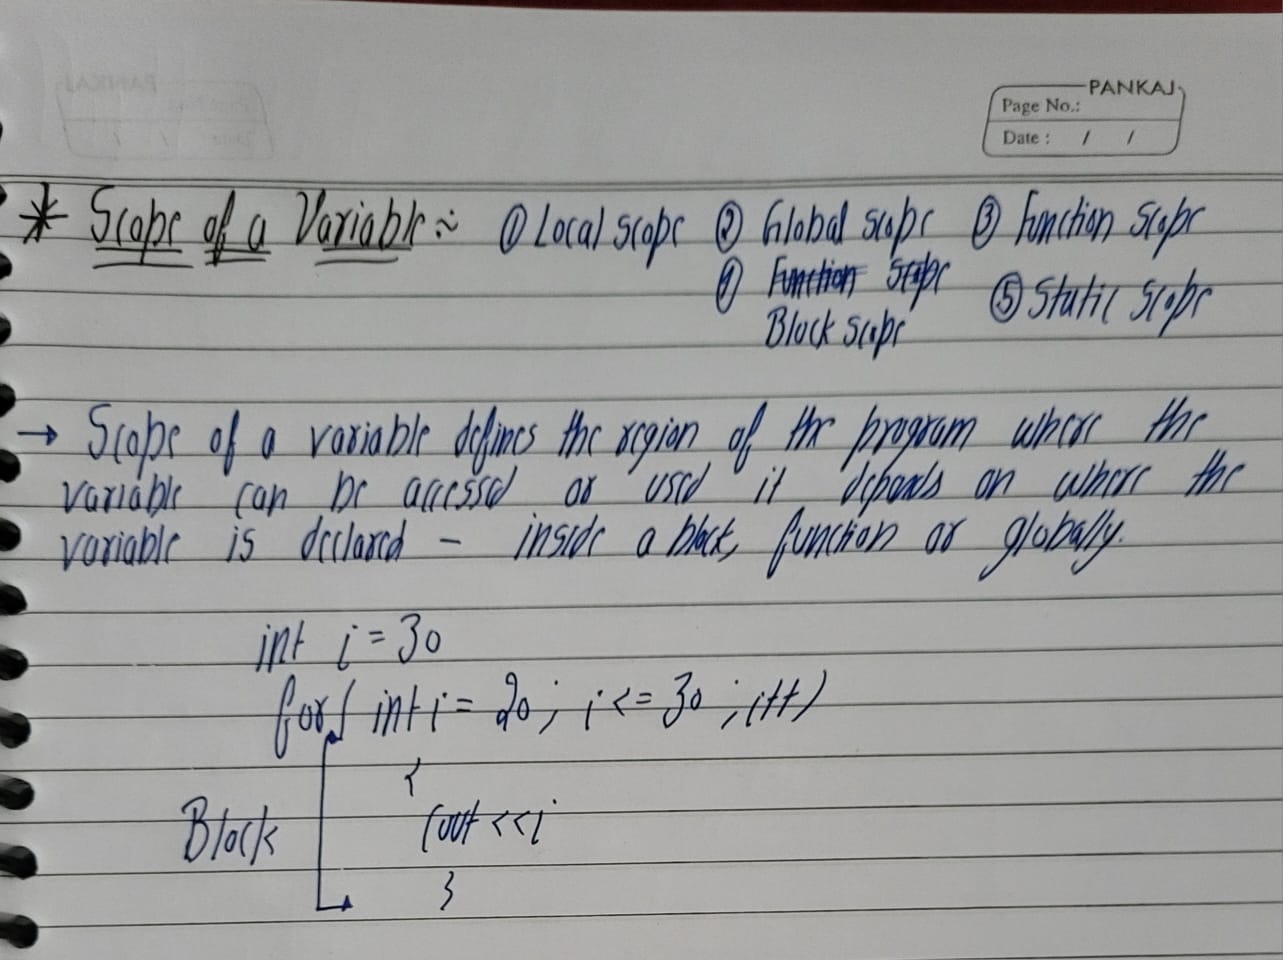 PANKAJ
Page No.:
Date : / /
* Scope of a Variable :~ ① Local scope ② Global scope ③ Function scope
④ Function scope
Block scope ⑤ Static scope
→ Scope of a variable defines the region of the program where the
variable can be accessed or used it depends on where the
variable is declared - inside a block, function or globally.
int i = 30
for( int i = 20 ; i <= 30 ; i++)
{
Block cout <<i
}